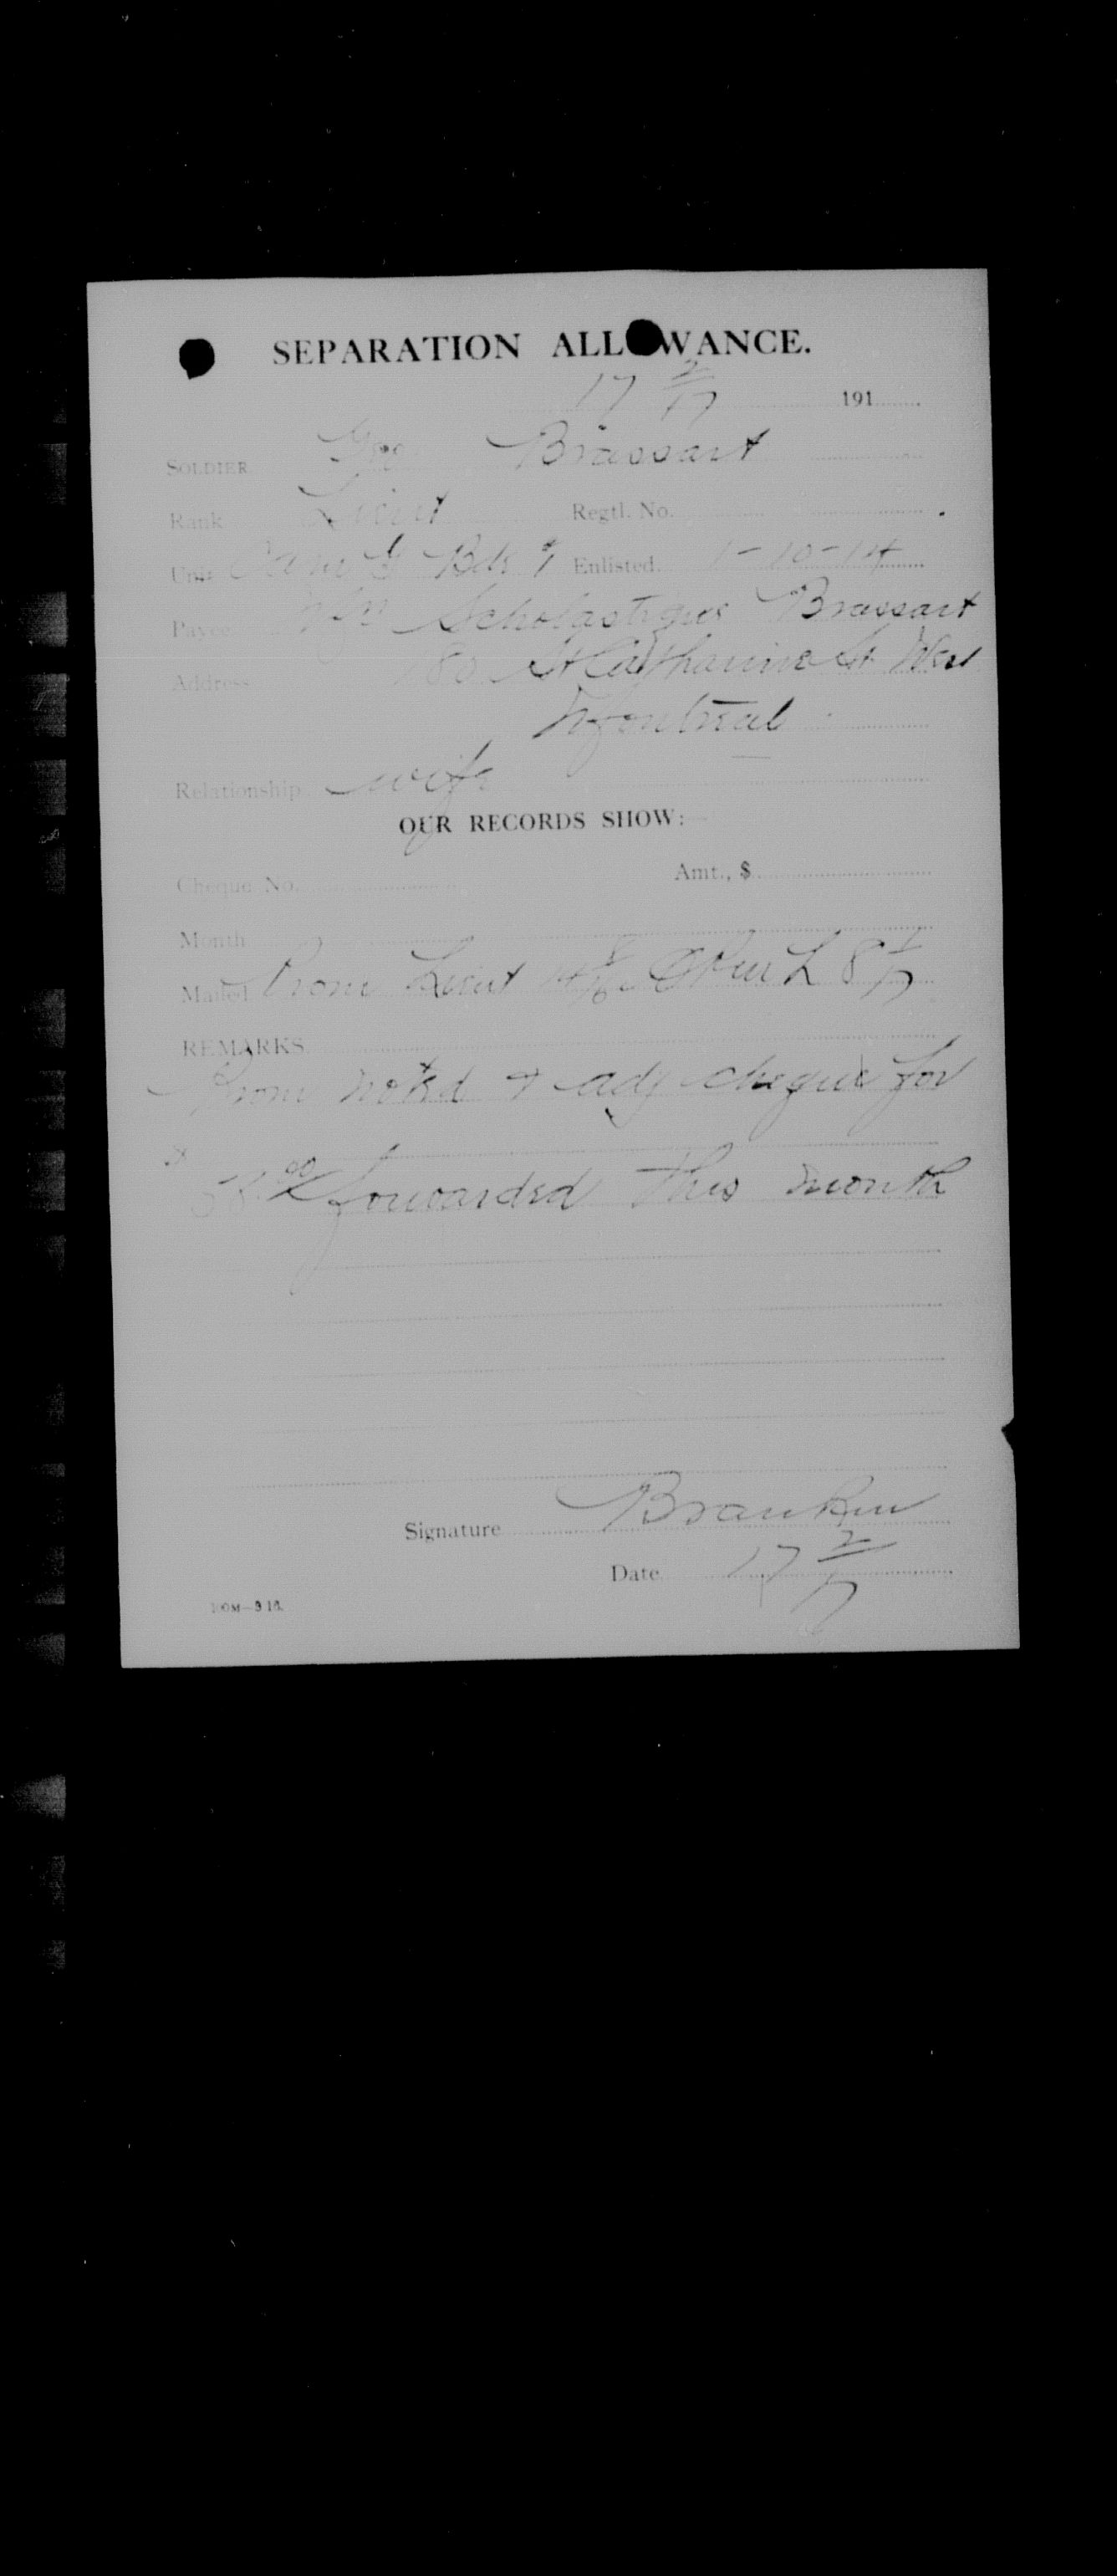 SEPARATION ALLOWANCE.
17 2/17 191
SOLDIER Geo Brassart
Rank Lieut Regtl. No.
Unit Enlisted. 1-10-14
Payee Scholastique Brassart
Address 180 St Catharine St West
Montreal
Relationship wife
OUR RECORDS SHOW:
Cheque No. Amt., $
Month
Mailed Prom Lieut
REMARKS
Prom noted + adj cheque for
forwarded this month
Signature
Date 17 2/17